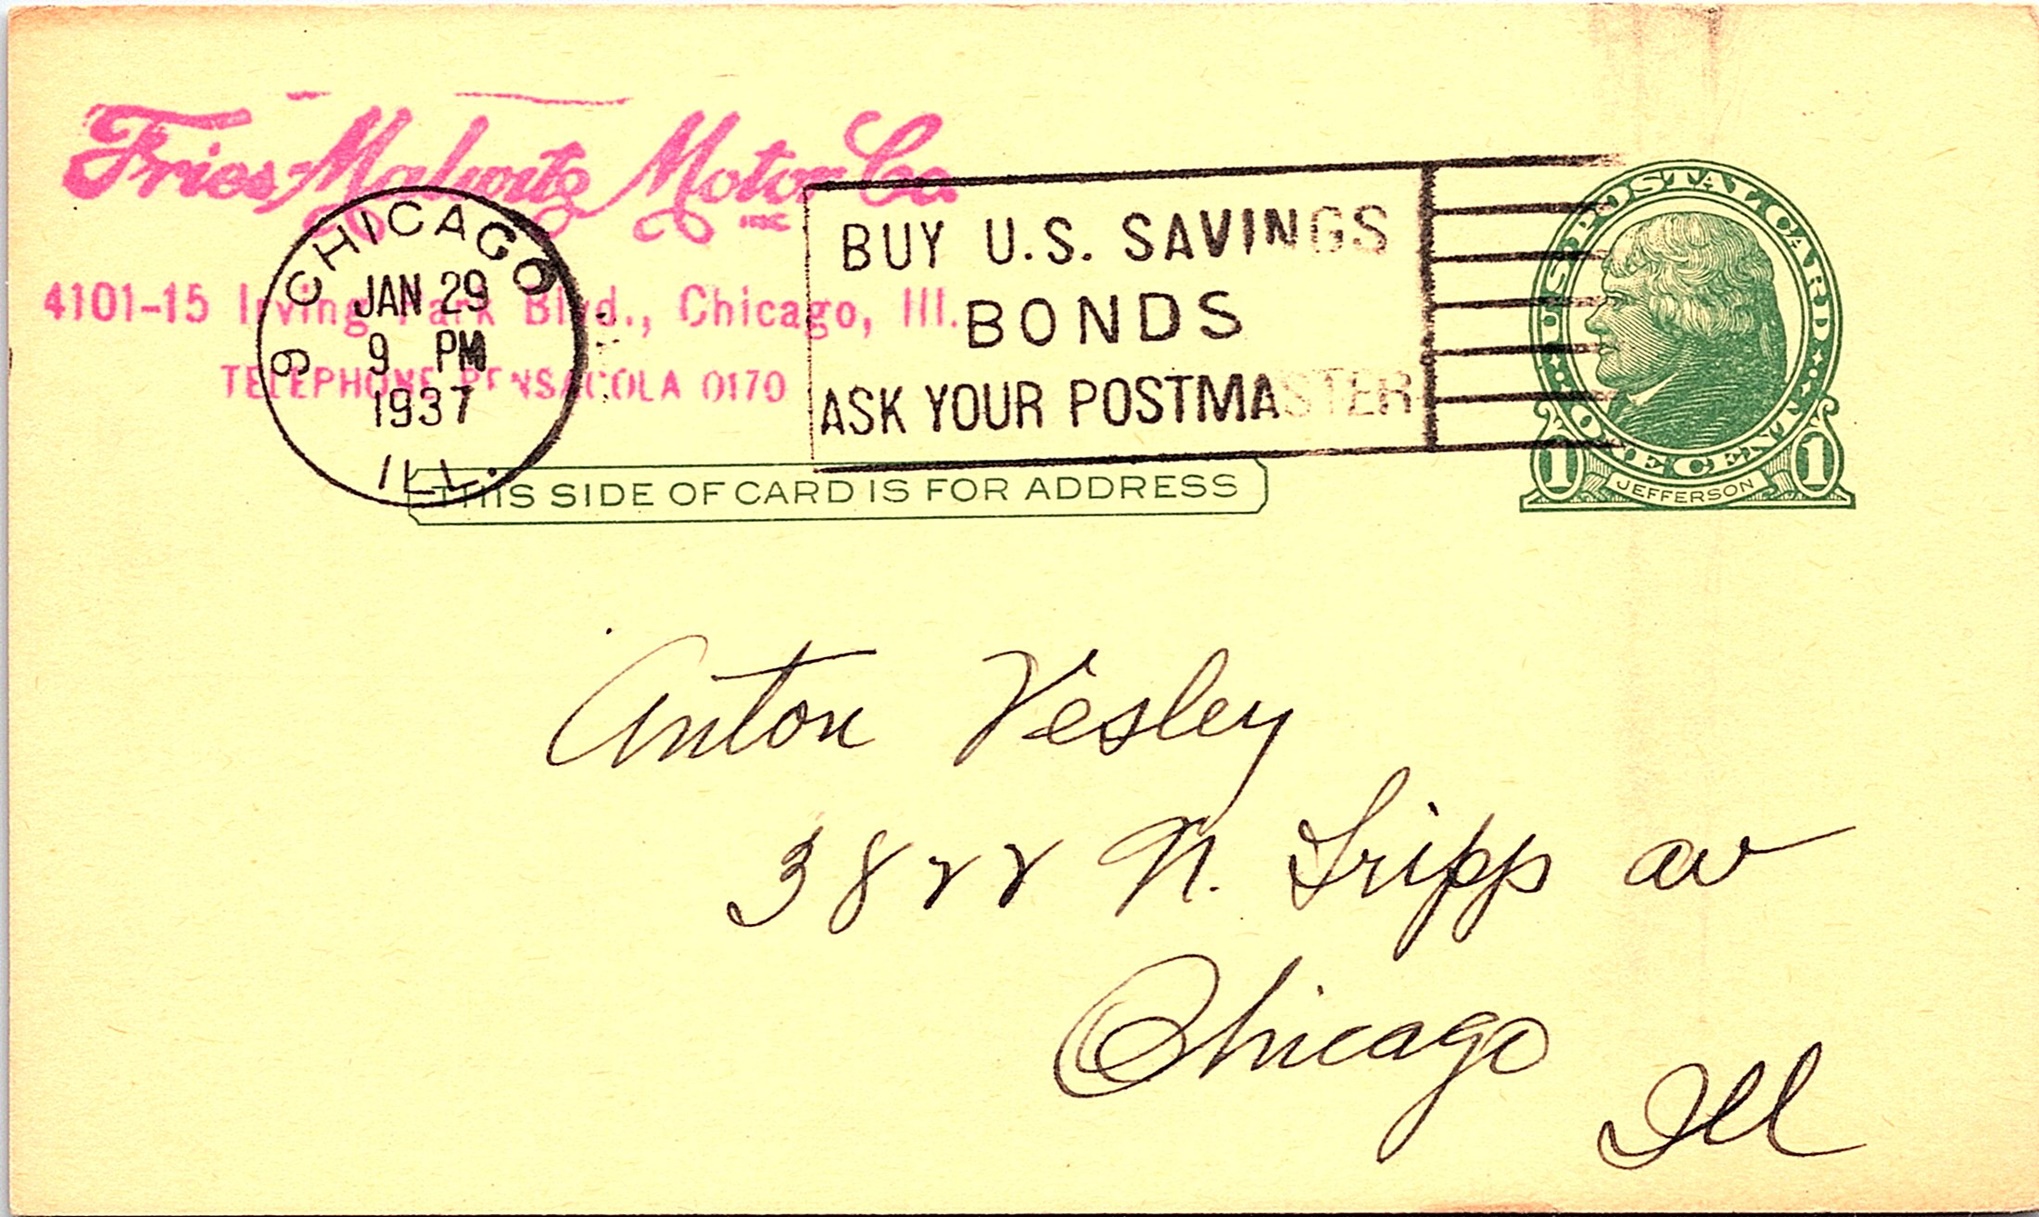 Fries-Malwitz Motor Co.
INC.
4101-15 Irving Park Blvd., Chicago, Ill.
TELEPHONE PENSACOLA 0170
CHICAGO
9
JAN 29
9 PM
1937
ILL.
BUY U.S. SAVINGS
BONDS
ASK YOUR POSTMASTER
U.S. POSTAL CARD
ONE CENT
1 JEFFERSON 1
THIS SIDE OF CARD IS FOR ADDRESS
Anton Vesley
3822 N. Tripp av
Chicago
Ill